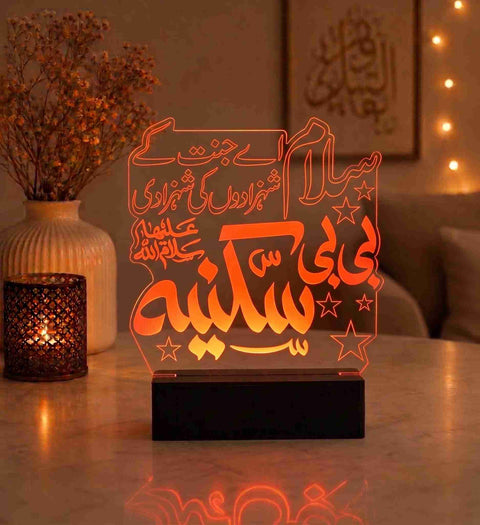 سلام اے جنت کے
شہزادوں کی شہزادی
بی بی سکینہ
سلام اللہ علیھا